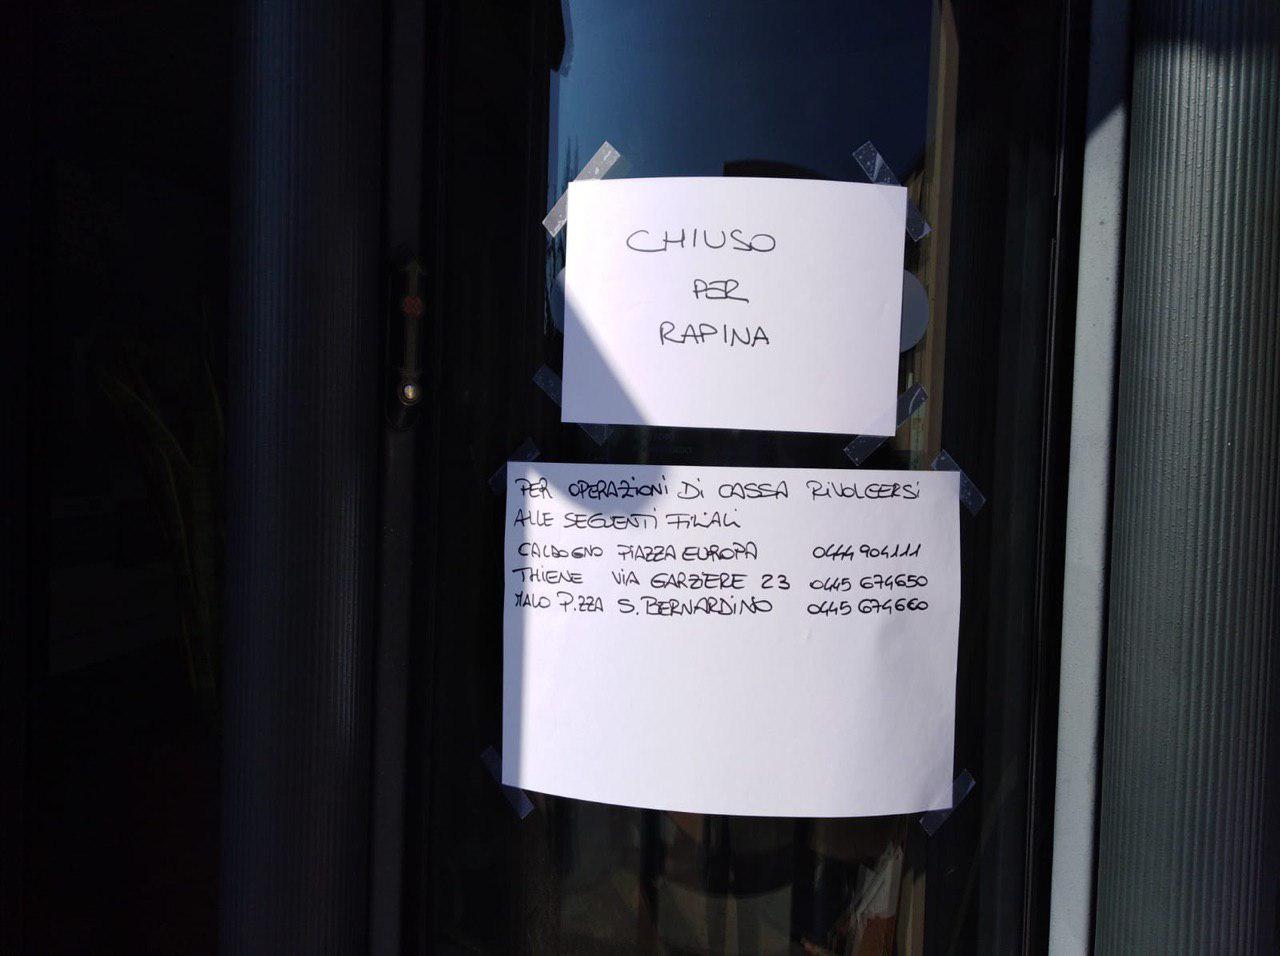 CHIUSO
PER
RAPINA
PER OPERAZIONI DI CASSA RIVOLGERSI
ALLE SEGUENTI FILIALI
CALDOGNO PIAZZA EUROPA 0444 904111
THIENE VIA GARZIERE 23 0445 674650
MALO P.ZZA S. BERNARDINO 0445 674660